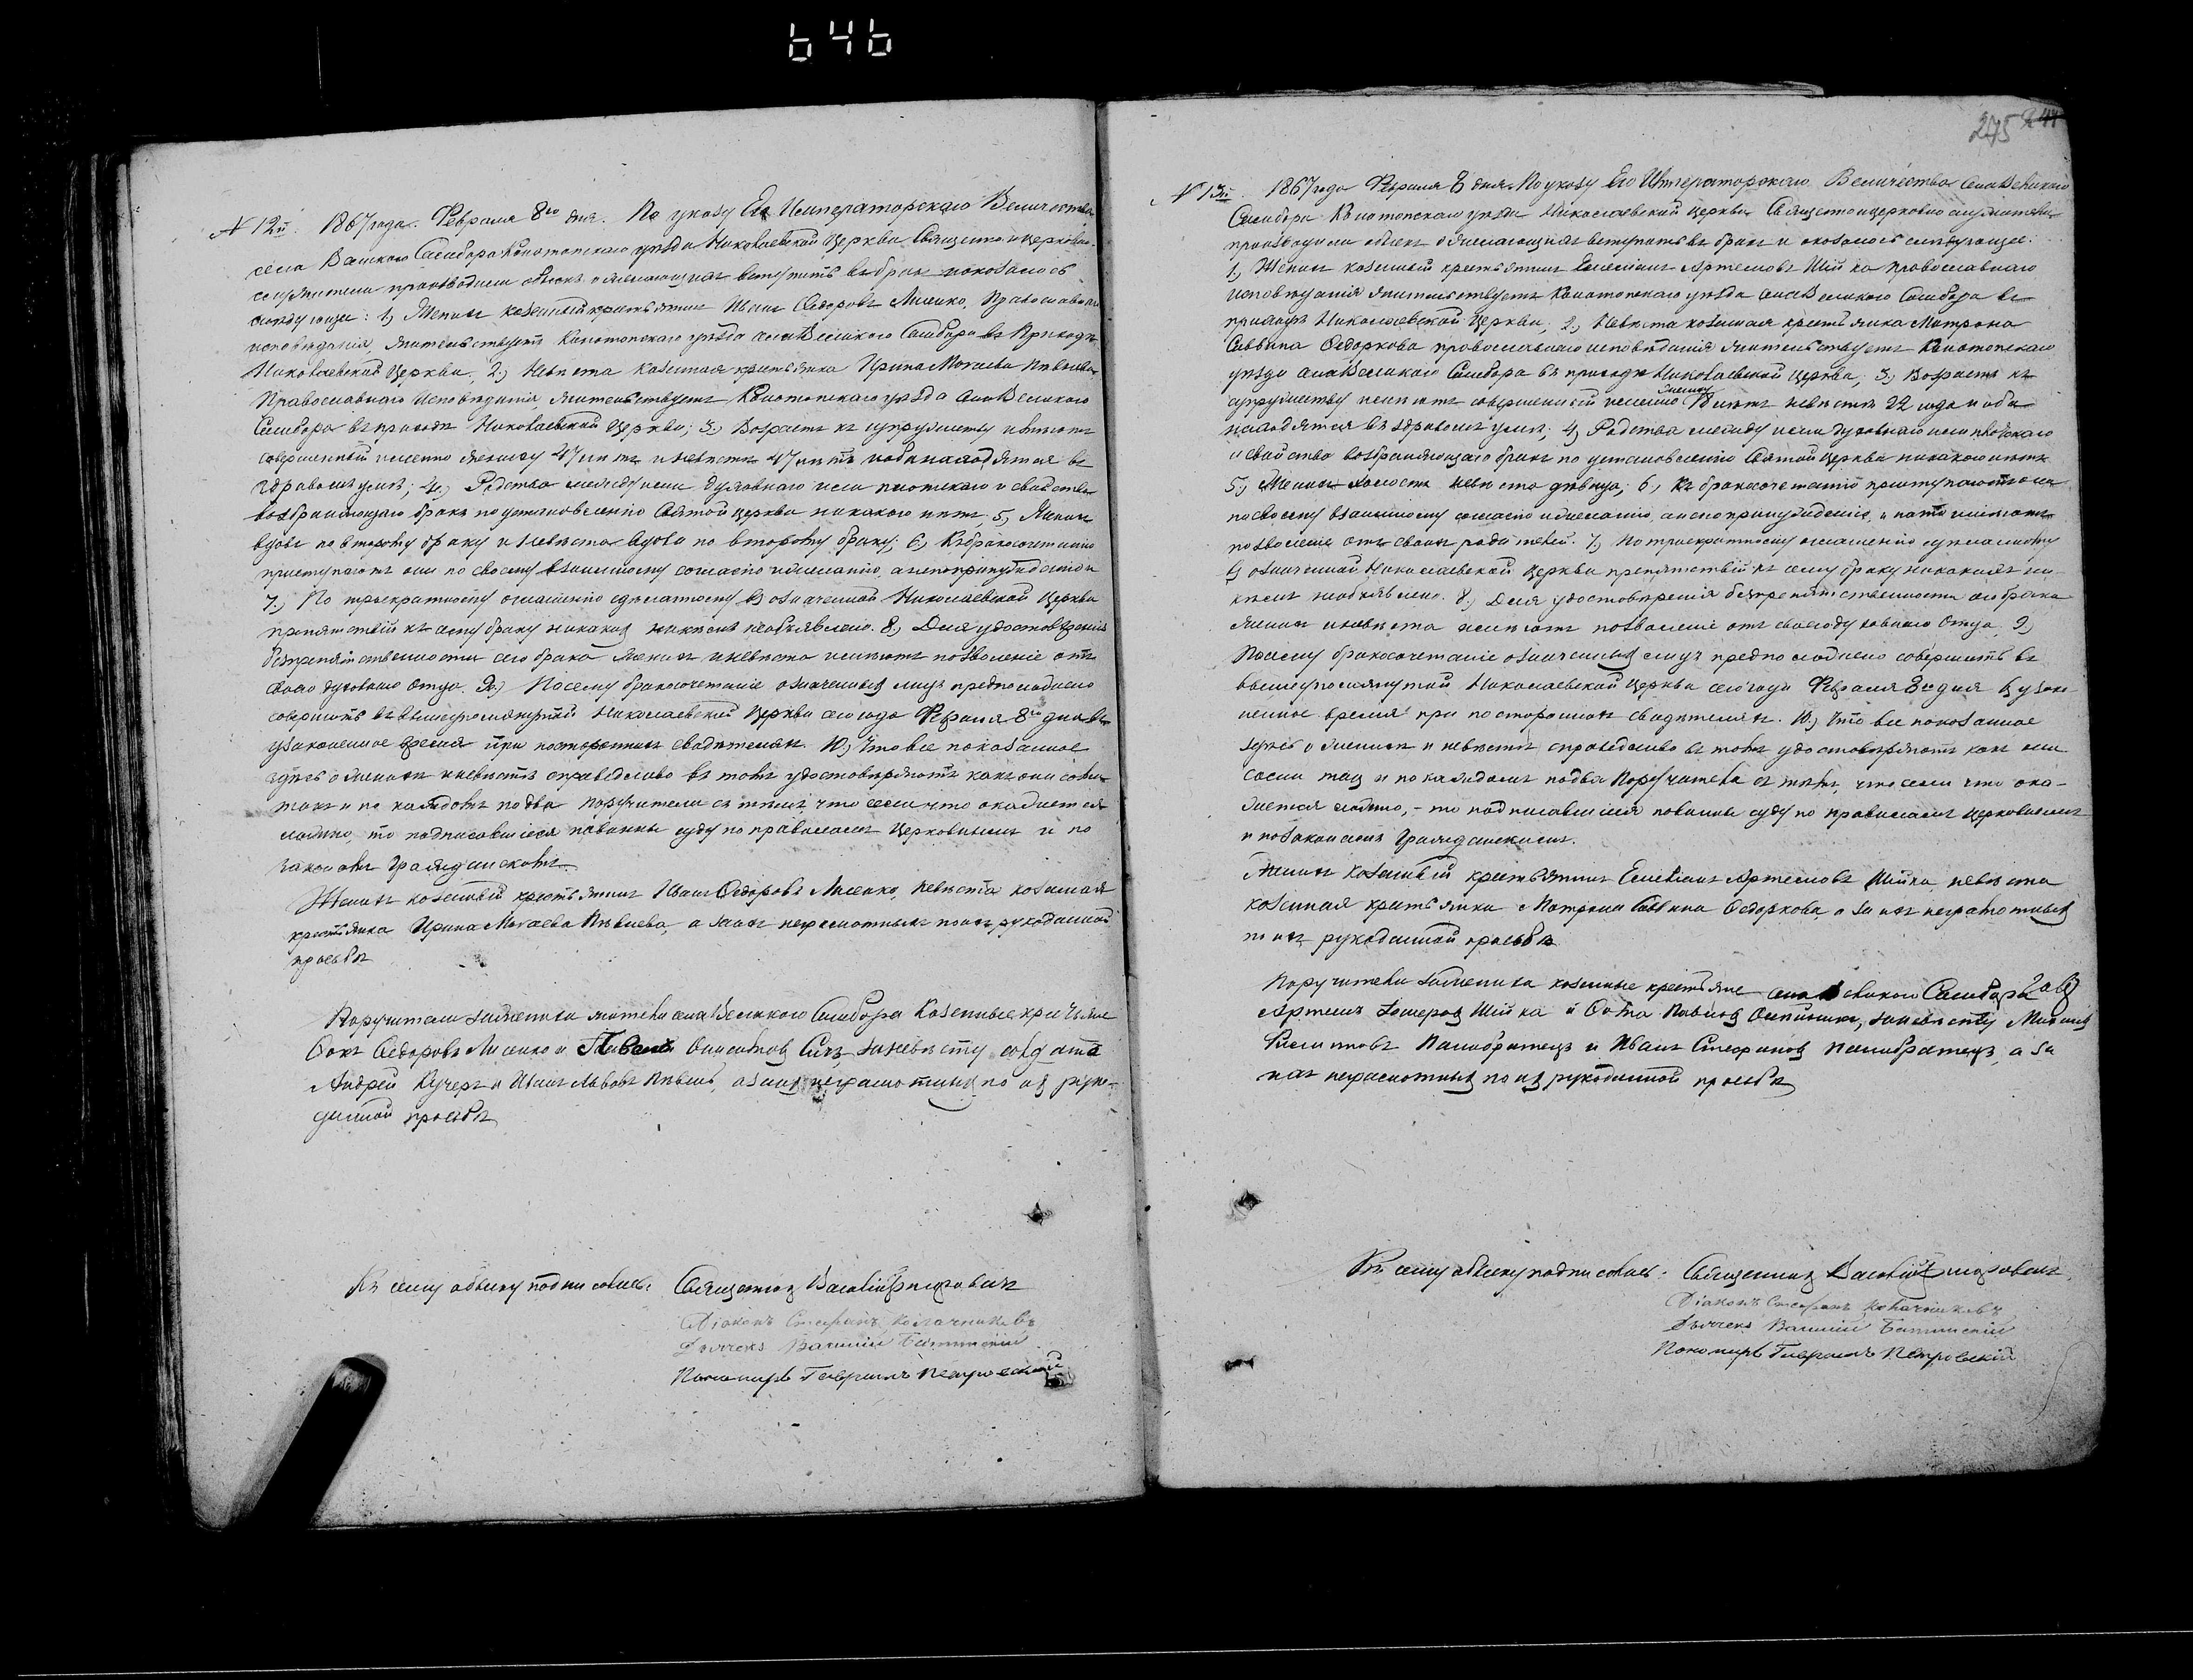 646
275
N 12й. 1867 года Февраля 8го дня. По указу Его Императорскаго Величества
села Великаго Самбора Конотопскаго уѣзда Николаевской Церкви Священно и церковно-
служители производили обыскъ о желающихъ вступить въ бракъ и оказалось
слѣдующее: 1) Женихъ казенный крестьянинъ Иванъ Ѳедоровъ Лисенко, Православнаго
исповѣданія, жительствуетъ Конотопскаго уѣзда села Великого Самбора въ Приходѣ
Николаевской Церкви, 2.) Невѣста казенная крестьянка Ирина
Православнаго Исповѣданія жительствуетъ Конотопскаго уѣзда села Великого
Самбора въ приходѣ Николаевской Церкви; 3.) Возрастъ къ супружеству имѣютъ
совершенный именно жениху 47 лѣтъ и невѣстѣ 47 лѣтъ и оба находятся въ
здравомъ умѣ; 4.) Родства между ими духовнаго или плотскаго и свойства
возбраняющаго бракъ по установленію Святой Церкви никакого нѣтъ, 5.) Женихъ
вдовъ по второму браку и Невѣста вдова по второму браку; 6.) Къ бракосочетанію
приступаютъ они по своему взаимному согласію и желанію, а не по принужденію и
7.) По троекратному оглашенію сдѣланному въ означенной Николаевской Церкви
препятствій къ сему браку никакихъ никѣмъ необъявлено. 8.) Для удостовѣренія
безпрепятственности сего брака женихъ и невѣста имѣютъ позволеніе отъ
своего духовнаго Отца. 9.) Посему бракосочетаніе означенныхъ лицъ предположено
совершить въ вышеупомянутой Николаевской Церкви сего года Февраля 8го дня въ
узаконенное время при постороннихъ свидѣтеляхъ. 10.) Что все показанное
здѣсь о женихѣ и невѣстѣ справедливо въ томъ удостовѣряютъ какъ они сами
такъ и по каждомъ по два поручителя съ тѣмъ что если что окажется
ложно, то подписавшіеся повинны суду по правиламъ Церковнымъ и по
законамъ Гражданскимъ.
Женихъ казенный крестьянинъ Иванъ Ѳедоровъ Лисенко, невѣста казенная
крестьянка Ирина а за ихъ неграмотныхъ по ихъ рукоданной
прозьбѣ
Поручители за жениха жители села Великого Самбора Казенные крестьяне
Ѳедоровъ Лисенко и за невѣсту солдатъ
Андрей Кучеръ и Иванъ а за ихъ неграмотныхъ по ихъ руко-
данной прозьбѣ
Къ сему обыску подписались: Священникъ Василій
Діаконъ Стефанъ
Дьячекъ
Пономарь Гавріилъ Петровскій
N 13й. 1867 года Февраля 8 дня. По указу Его Императорскаго Величества села Великаго
Самбора Конотопскаго уѣзда Николаевской Церкви Священно и церковно служители
производили обыскъ о желающихъ вступить въ бракъ и оказалось слѣдующее:
1.) Женихъ казенный крестьянинъ Емеліанъ Артемовъ Шійка православнаго
исповѣданія жительствуетъ Конотопскаго уѣзда села Великого Самбора въ
приходѣ Николаевской Церкви; 2.) Невѣста казенная крестьянка Матрона
Саввина Ѳедоркова православнаго исповѣданія жительствуетъ Конотопскаго
уѣзда села Великого Самбора въ приходѣ Николаевской Церкви, 3.) Возрастъ къ
супружеству имѣютъ совершенный именно жениху лѣтъ невѣстѣ 22 года и оба
находятся въ здравомъ умѣ; 4.) Родства между ими духовнаго или плотскаго
и свойства возбраняющаго бракъ по установленію Святой Церкви никакого нѣтъ
5.) Женихъ холостъ невѣста дѣвица; 6.) Къ бракосочетанію приступаютъ они
по своему взаимному согласію и желанію, а не по принужденію, и на то имѣютъ
позволеніе отъ своихъ родителей. 7.) По троекратному оглашенію сдѣланному
въ означенной Николаевской Церкви препятствій къ сему браку никакихъ ни-
кѣмъ необъявлено. 8.) Для удостовѣренія безпрепятственности сего брака
женихъ и невѣста имѣютъ позволеніе отъ своего духовнаго Отца, 9.)
Посему бракосочетаніе означенныхъ лицъ предположено совершить въ
вышеупомянутой Николаевской Церкви сего года Февраля 8го дня въ узако-
ненное время при постороннихъ свидѣтеляхъ. 10.) Что все показанное
здѣсь о женихѣ и невѣстѣ справедливо въ томъ удостовѣряютъ какъ они
сами такъ и по каждомъ по два Поручителя съ тѣмъ, что если что ока-
жется ложно, - то подписавшіеся повинны суду по правиламъ церковнымъ
и по законамъ Гражданскимъ.
Женихъ казенный крестьянинъ Емеліанъ Артемовъ Шійка, невѣста
казенная крестьянка Матрона Саввина Ѳедоркова а за ихъ неграмотныхъ
по ихъ рукоданной прозьбѣ
Поручители за жениха казенные крестьяне села Великого Самбора
Артемъ Шійка и за невѣсту
и Иванъ Стефановъ а за
ихъ неграмотныхъ по ихъ рукоданной прозьбѣ
Къ сему обыску подписались: Священникъ Василій
Діаконъ Стефанъ
Дьячекъ
Пономарь Гавріилъ Петровскій